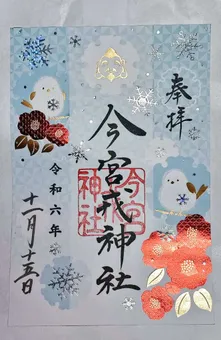 奉拝
今宮戎神社
今宮
神社
令和六年
十一月十五日